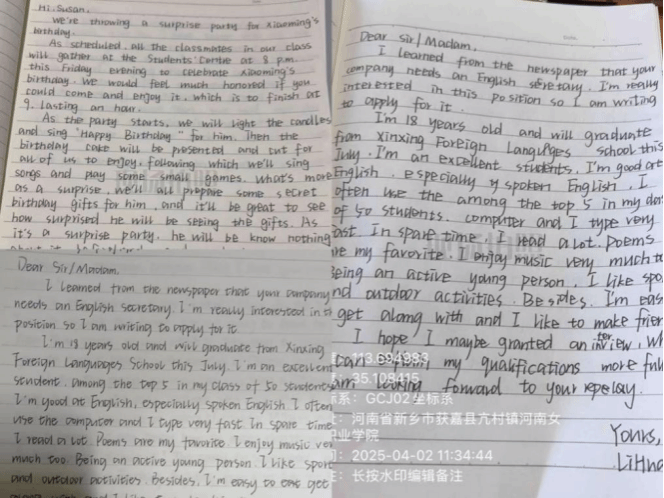 Hi. Susan.
We're throwing a surprise party for Xiaoming's
birthday.
As scheduled, all the classmates in our class
will gather at the Students' Centre at 8 p.m.
this Friday evening to celebrate Xiaoming's
birthday. We would feel much honored if you
could come and enjoy it, which is to finish at
9. lasting an hour.
As the party starts, we will light the candles
and sing "Happy Birthday" for him. Then the
birthday cake will be presented and cut for
all of us to enjoy, following which we'll sing
songs and play some small games. What's more
as a surprise, we'll all prepare some secret
birthday gifts for him, and it'll be great to see
how surprised he will be seeing the gifts. As
it's a surprise party, he will be know nothing
Dear Sir/Madam.
I learned from the newspaper that your company
needs an English secretary. I'm really interested in th
position so I am writing to apply for it.
I'm 18 years old and will graduate from Xinxing
Foreign Languages School this July. I'm an excellen
student, among the top 5 in my class of 50 students
I'm good at English, especially spoken English. I often
use the computer and I type very fast In spare time
I read a lot Poems are my favorite. I enjoy music ver
much too. Being an active young person. I like spor
and outdoor activities. Besides. I'm easy to get
Dear Sir/Madam.
I learned from the newspaper that your
company needs an English secretary. I'm really
interested in this position so I am writing
to apply for it.
I'm 18 years old and will graduate
from Xinxing Foreign Languages school this
July. I'm an excellent students. I'm good at
English, especially y spoken English. I
often use the among the top 5 in my clas
of 50 students. computer and I type very
fast In spare time. I read a lot. poems
re my favorite. I enjoy music very much to
Being an active young person. I like spo
nd outdoor activities. Besides. I'm eas
get along with and I like to make frien
I hope I maybe granted an interview, wh
can explain my qualifications more ful
am looking forward to your repelay.
Yours,
LiHua
113.694983
35.108415
标系: GCJ02 坐标系
河南省新乡市获嘉县亢村镇河南女
业学院
2025-04-02 11:34:44
长按水印编辑备注